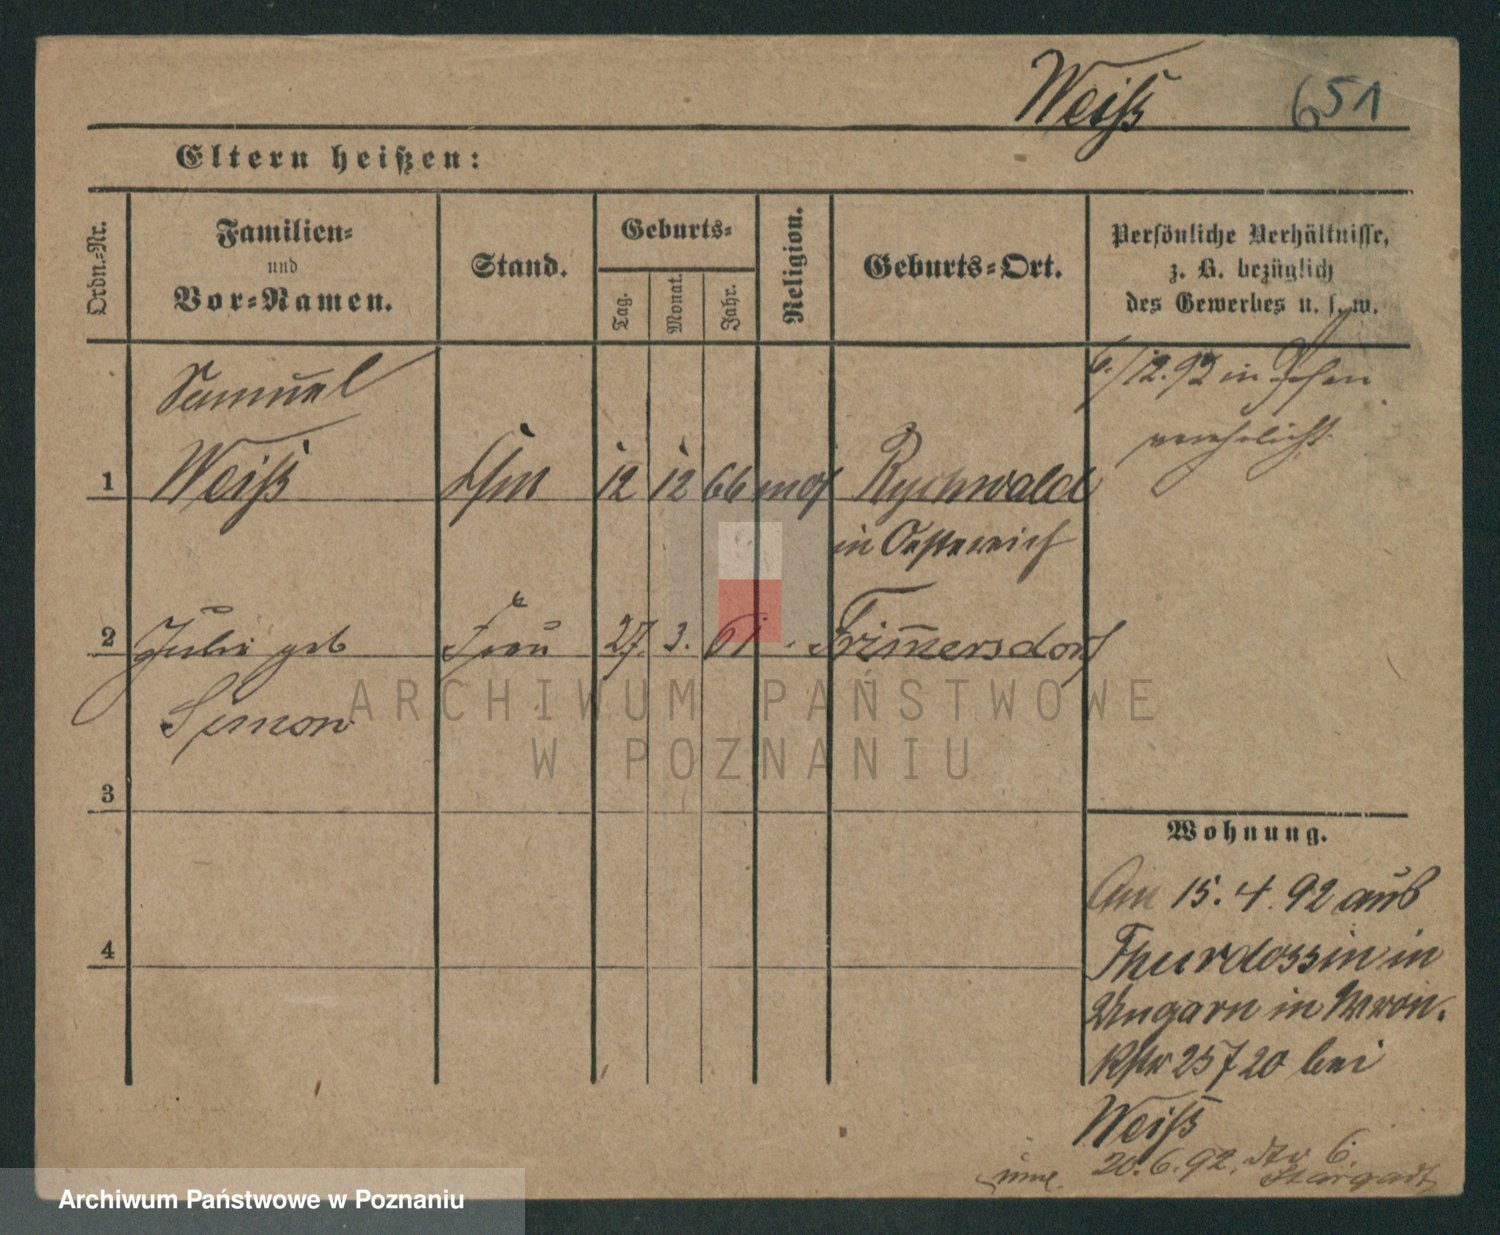 Weiß 651
Eltern heißen:
Ordn.-Nr.
Familien-
und
Vor-Namen.
Stand.
Geburts-
Tag.
Monat.
Jahr.
Religion.
Geburts-Ort.
Persönliche Verhältnisse,
z. B. bezüglich
des Gewerbes u. s. w.
Samuel
1 Weiß 12 12 66 mos Rychwald
in Oesterreich
6./12.92 in Posen
verehelicht
2 Julie geb Frau 27. 3. 61. Trimmersdorf
Simon
3
4
Wohnung.
Am 15.4.92 aus
Thurdossin in
Ungarn in Wron.
25 20 bei
Weiß
20.6.92. 6.
Stargardt
ARCHIWUM PAŃSTWOWE
W POZNANIU
Archiwum Państwowe w Poznaniu